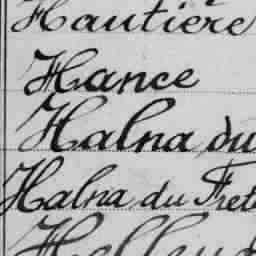 Hautière
Hance
Halna du
Halna du Fret